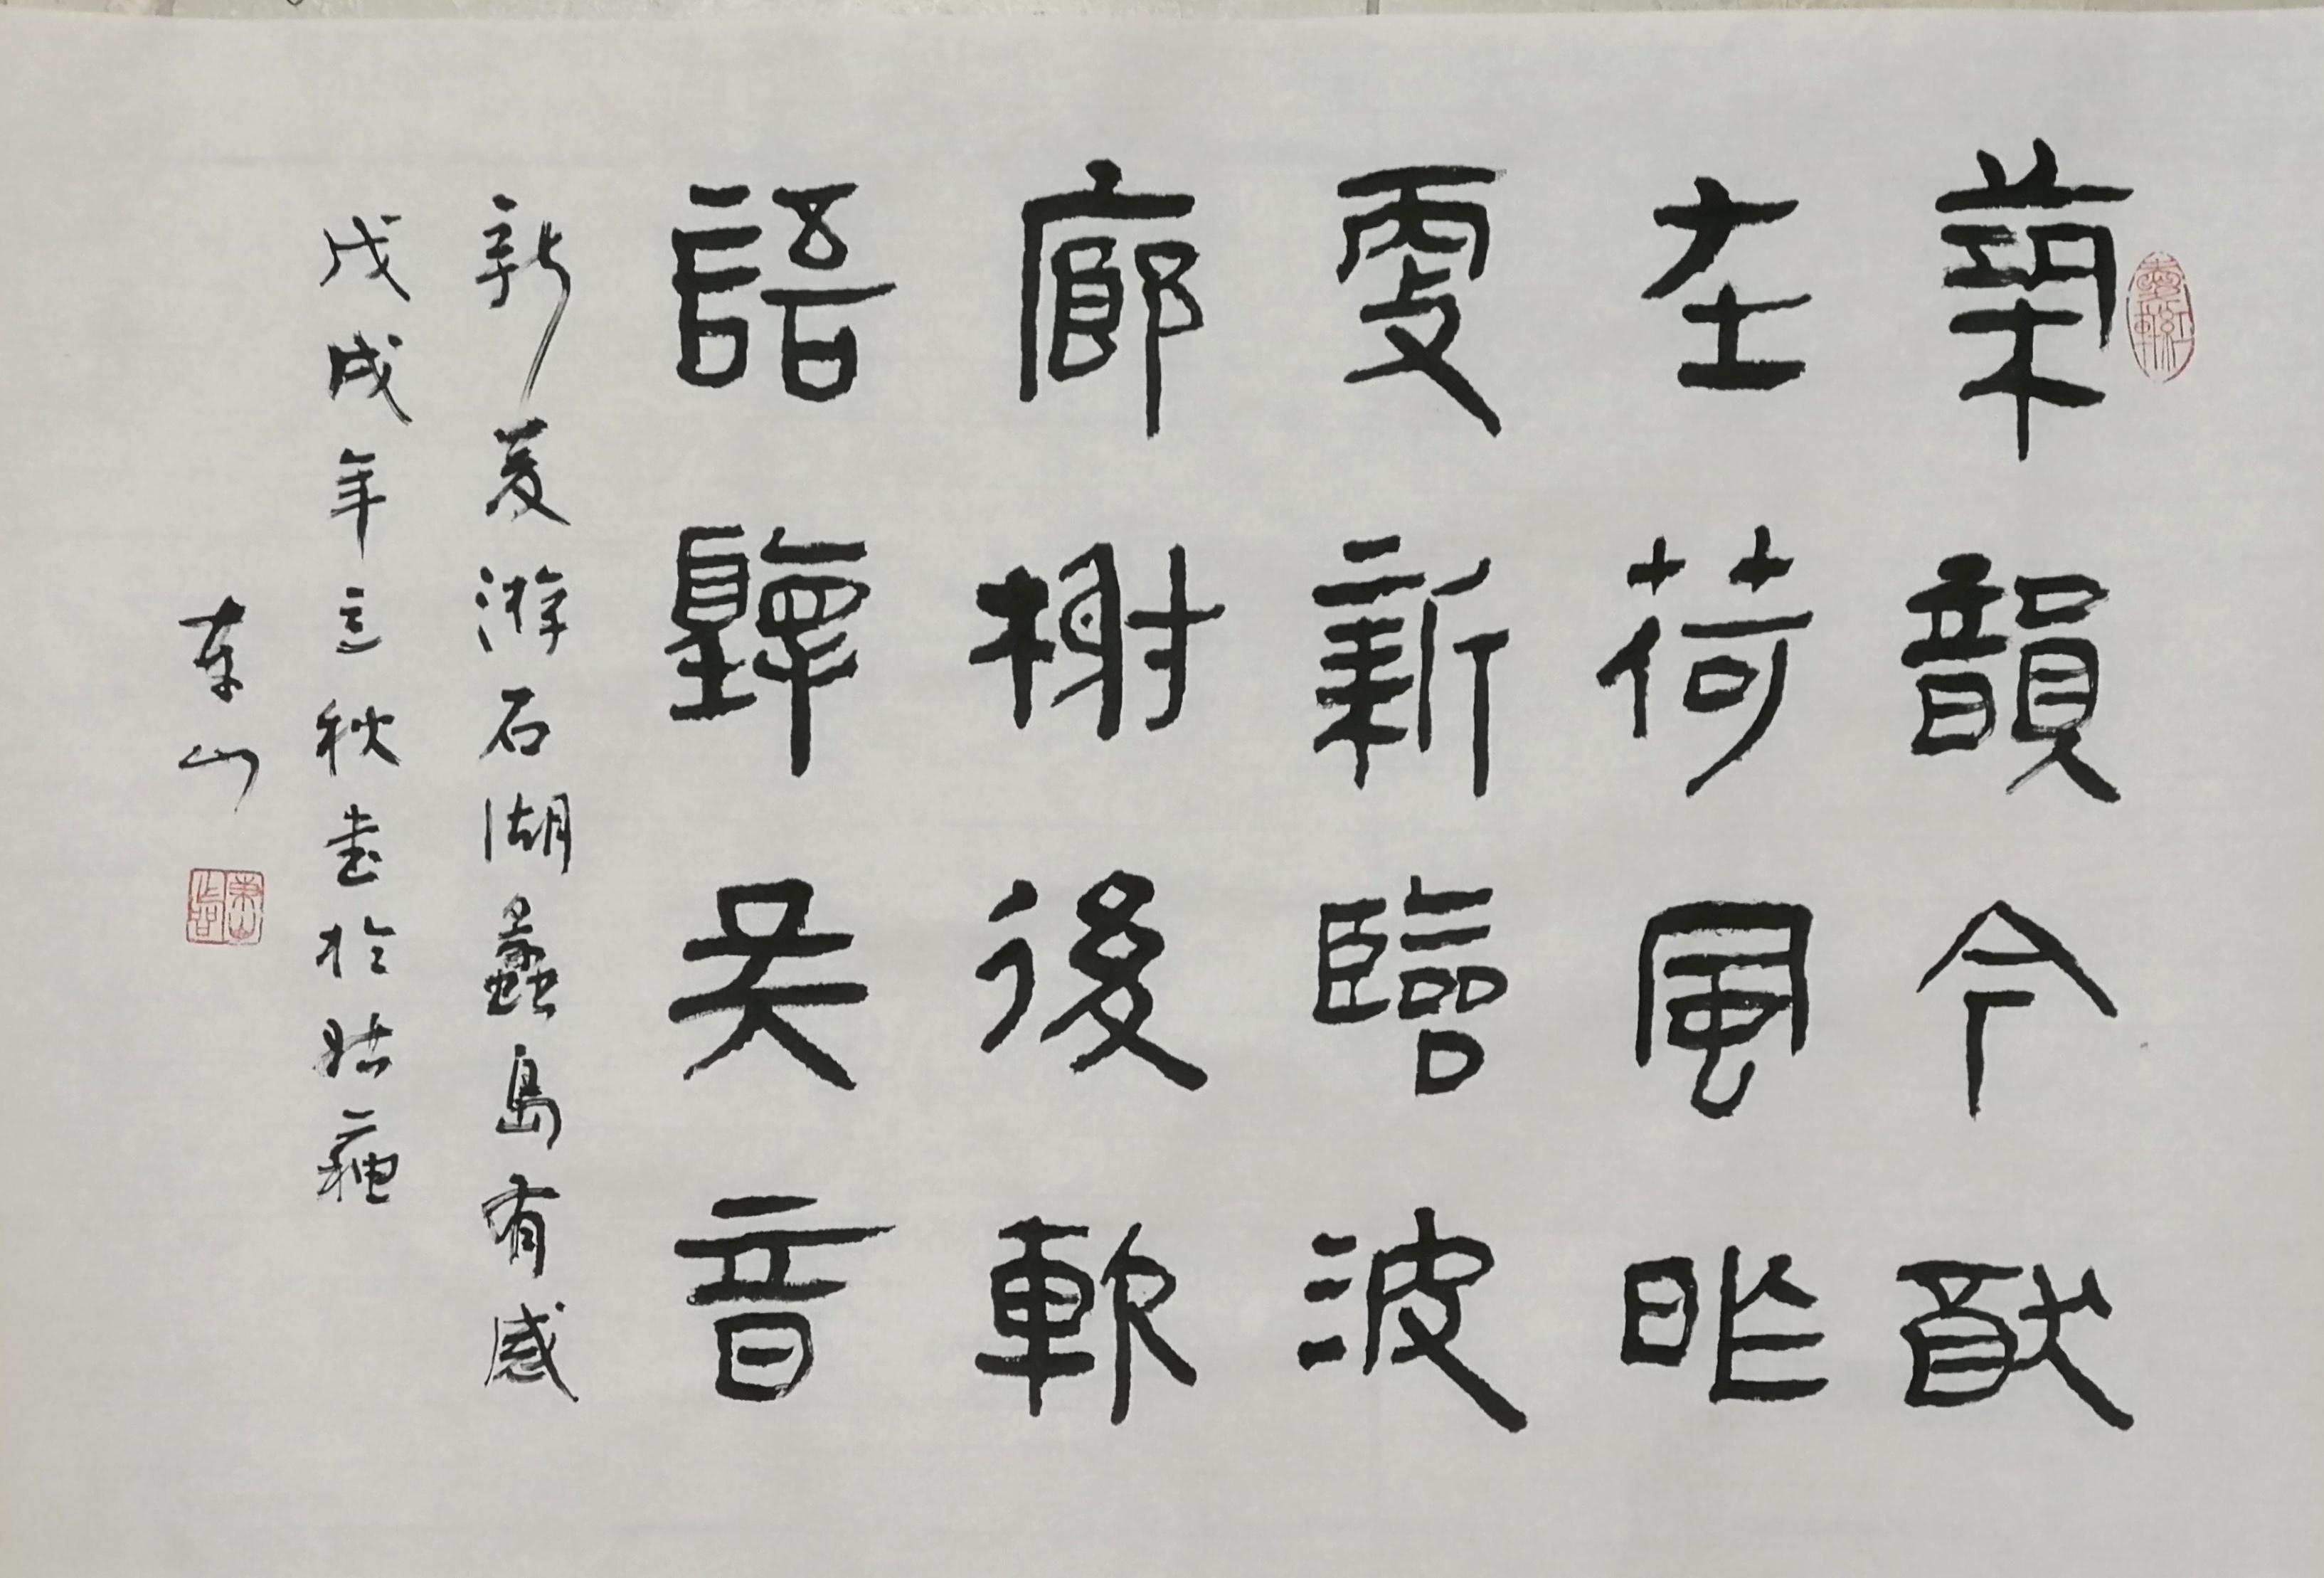 築韻今猷
在荷風昨
更新臨波
廊榭後軟
語聽吳音
新夏游石湖蠡島有感
戊戌年立秋書於姑蘇
東山